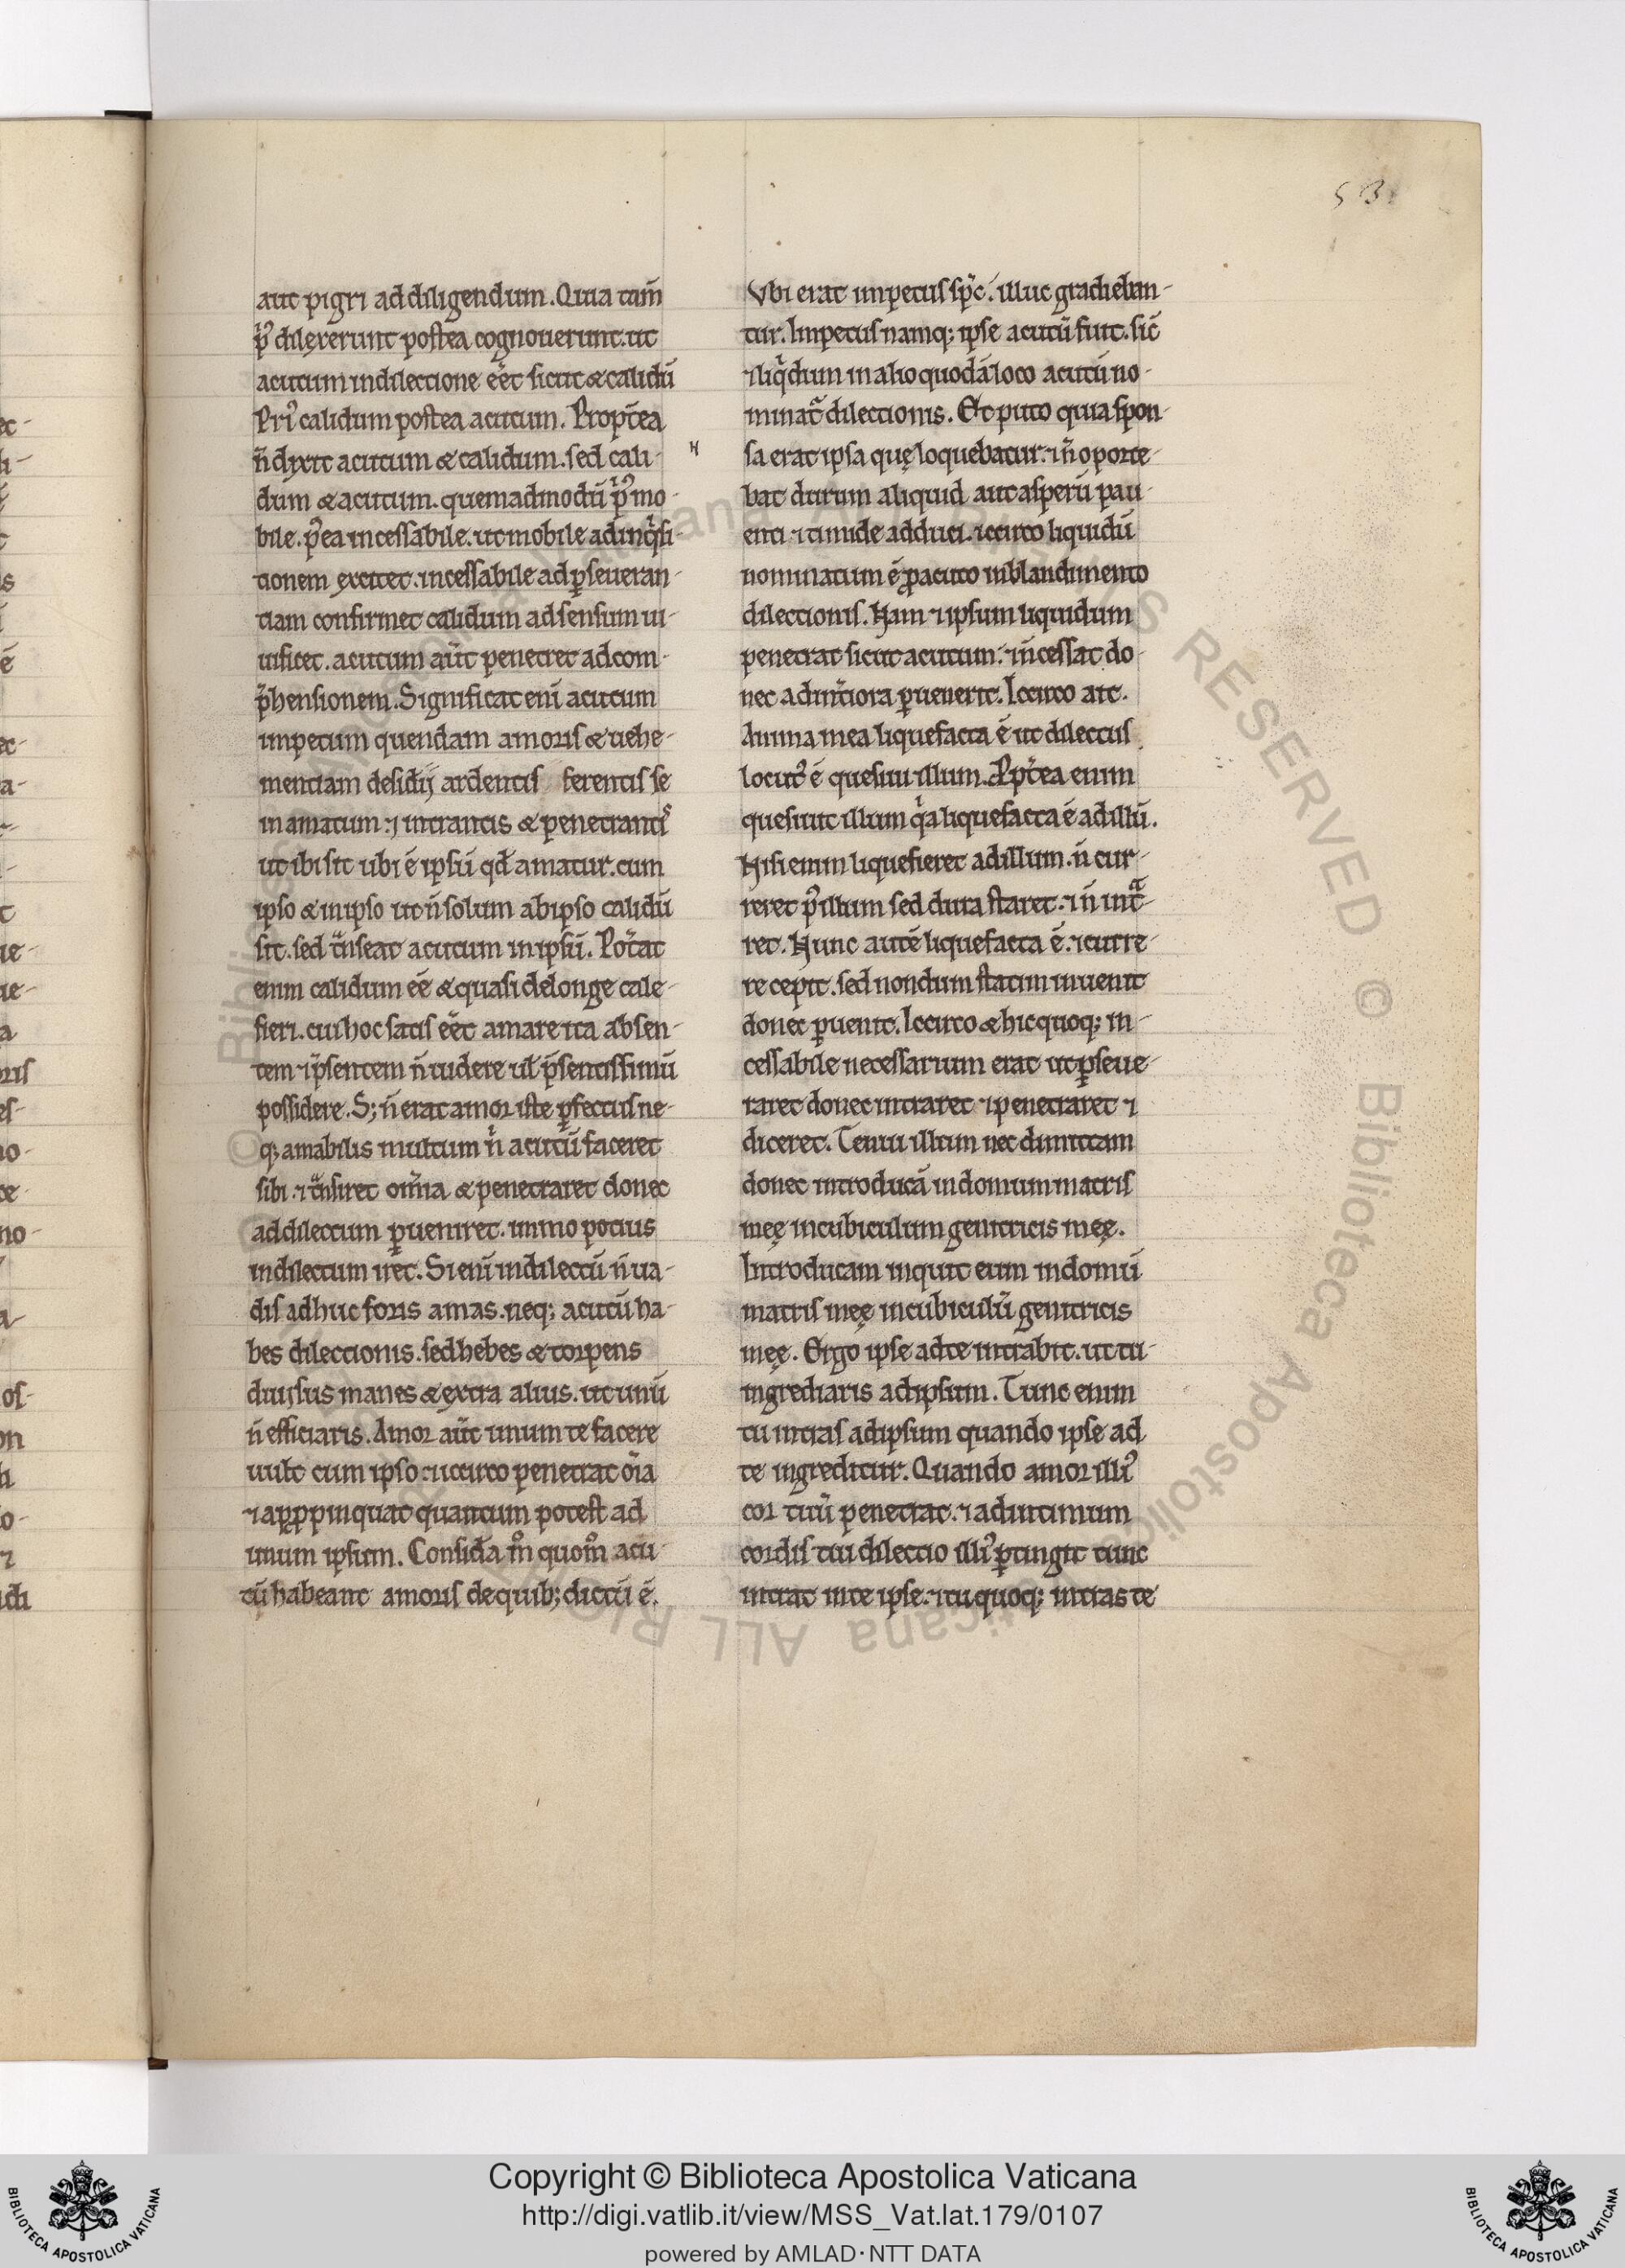 53
aut pigri ad diligendum. Quia tam̄
p'us dilexerunt postea cognouerunt. ut
acutum in dilectione eēt sicut & calidū
Pri' calidum postea acutum. Propt̄ea
n̄ dixit acutum & calidum. sed cali-
dum & acutum. quemadmodū p'mo-
bile. p'ea incessabile. ut mobile ad inq'si-
tionem excitet. incessabile ad ꝑseueran-
tiam confirmet calidum ad sensum ui-
uificet. acutum aūt penetret ad com-
p̄hensionem. Significat enī acutum
impetum quendam amoris & uehe-
mentiam desidīj ardentis ferentis se
in amatum ⁊ intrantis & penetrantis
ut ibi sit ubi ē ipsū qd̄ amatur. cum
ipso & in ipso ut n̄ solum ab ipso calidū
sit. sed t̄nseat acutum in ipsū. Pot̄at
enim calidum eē & quasi de longe cale-
fieri. cui hoc satis eēt amare ita absen-
tem ⁊ p̄sentem n̄ uidere ul̄ p̄sentissimū
possidere. S; n̄ erat amor iste ꝑfectus ne-
q; amabilis multum n' acutū faceret
sibi ⁊ t̄nsiret om̄ia & penetraret donec
ad dilectum ꝑueniret. immo potius
in dilectum iret. Si enī in dilectū n̄ ua-
dis adhuc foris amas. neq; acutū ha-
bes dilectionis. sed hebes & torpens
diuisus manes & extra alius. ut unū
n̄ efficiaris. Amor aūt unum te facere
uult cum ipso. iccirco penetrat om̄ia
⁊ apꝓpinquat quantum potest ad
unum ipsum. Consida m° quom° acu-
tū habeant amoris de quib; dictū ē.
H
Vbi erat impetus sp̄c. illuc gradieban-
tur. Impetus namq; ipse acutū fuit. sic̄
⁊ liq'dum in alio quodā loco acutū no-
minat̄ dilectionis. Et puto quia spon-
sa erat ipsa quę loquebatur. ⁊ n̄ oporte-
bat durum aliquid aut asperū pau-
enti ⁊ timide adduci. iccirco liquidū
nominatum ē ꝓ acuto in blandimento
dilectionis. Nam ⁊ ipsum liquidum
penetrat sicut acutum. ⁊ n̄ cessat do-
nec ad int̄iora ꝑuenerit. Iccirco ait.
Anima mea liquefacta ē ut dilectus
locut' ē quesiui illum. Ppt̄ea enim
quesiuit illum q'a liquefacta ē ad illū.
Nisi enim liquefieret ad illum. n̄ cur-
reret p' illum sed dura staret. ⁊ n̄ int̄-
ret. Nunc autē liquefacta ē. ⁊ curre-
re cepit. sed nondum statim inuenit
donec ꝑuenit. Iccirco & hic quoq; in-
cessabile necessarium erat ut ꝑseue-
raret donec intraret ⁊ penetraret ⁊
diceret. Tenui illum nec dimittam
donec introducā in domum matris
meę in cubiculum genitricis meę.
Introducam inquit eum in domū
matris meę in cubiculū genitricis
meę. Ergo ipse ad te intrabit. ut tu
ingrediaris ad ipsum. Tunc enim
tu intras ad ipsum quando ipse ad
te ingreditur. Quando amor illi'
cor tuū penetrat. ⁊ ad intimum
cordis tui dilectio illi' ꝑtingit tunc
intrat in te ipse. ⁊ tu quoq; intras te
Copyright © Biblioteca Apostolica Vaticana
http://digi.vatlib.it/view/MSS_Vat.lat.179/0107
powered by AMLAD·NTT DATA
BIBLIOTECA APOSTOLICA VATICANA
BIBLIOTECA APOSTOLICA VATICANA